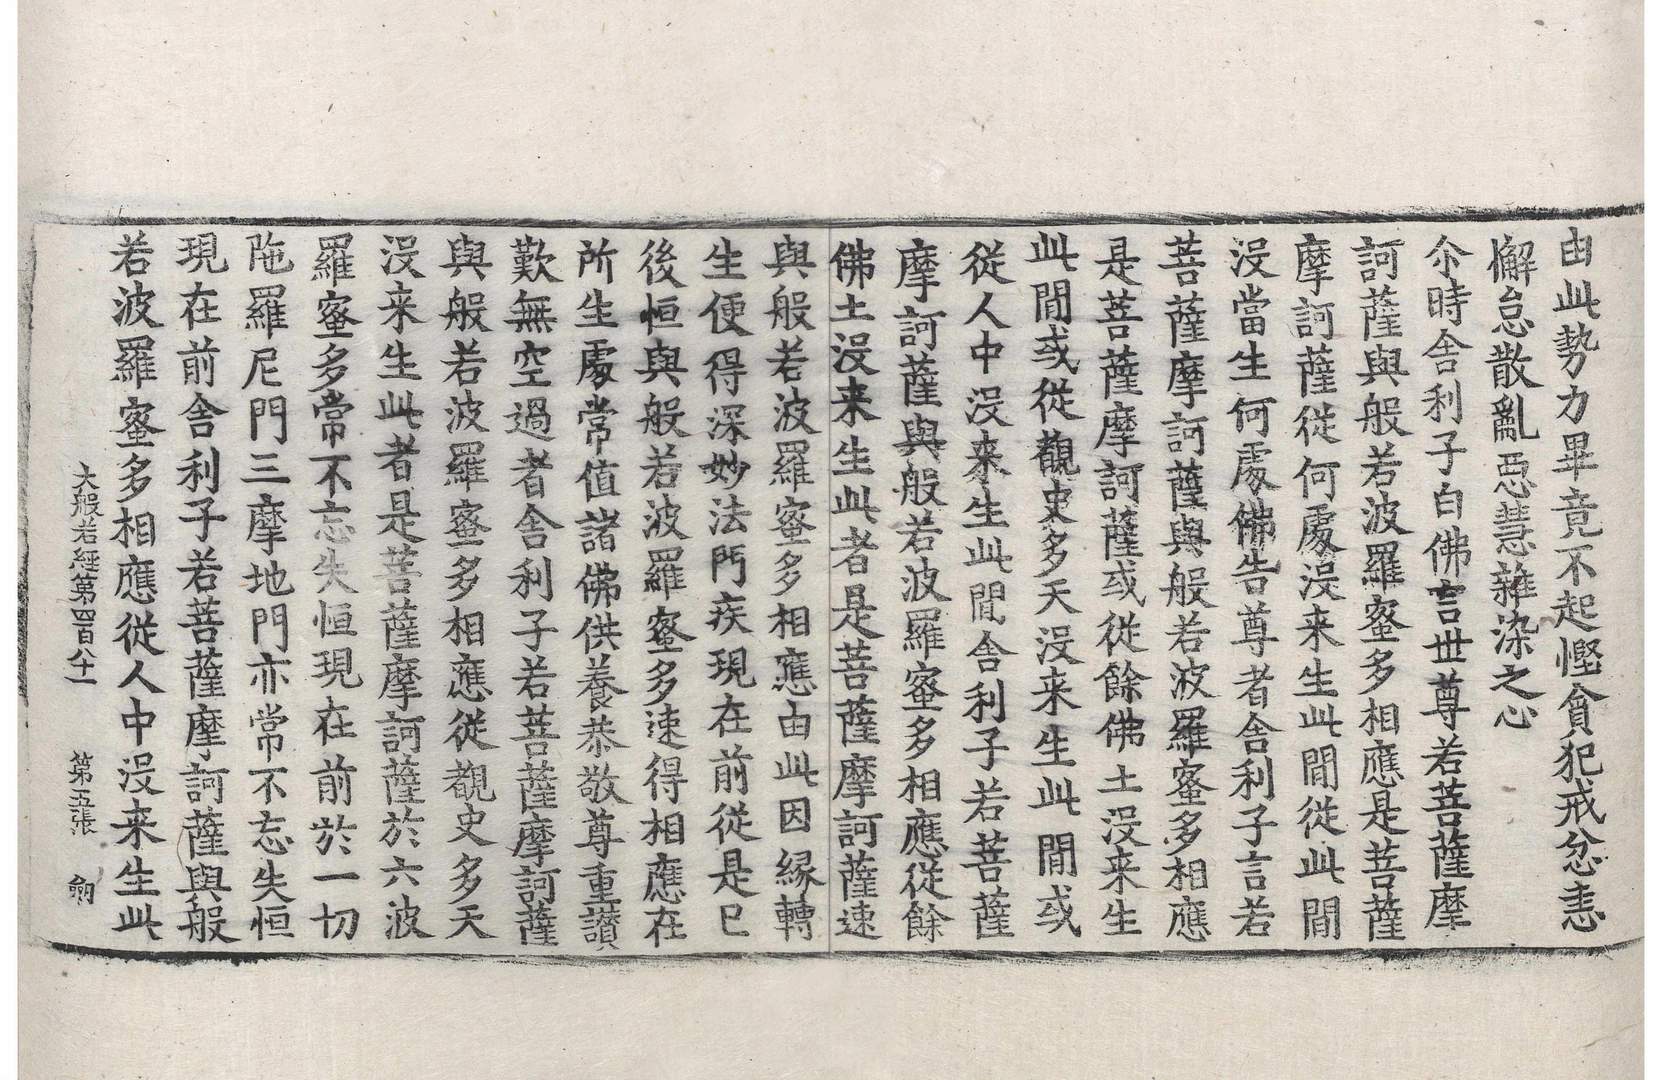 由此勢力畢竟不起慳貪犯戒忿恚
懈怠散亂惡慧雜染之心
尒時舍利子白佛言世尊若菩薩摩
訶薩與般若波羅蜜多相應是菩薩
摩訶薩從何處没来生此間從此間
没當生何處佛告尊者舍利子言若
菩薩摩訶薩與般若波羅蜜多相應
是菩薩摩訶薩或從餘佛土没来生
此間或從覩史多天没来生此間或
從人中没来生此間舍利子若菩薩
摩訶薩與般若波羅蜜多相應從餘
佛土没来生此者是菩薩摩訶薩速
與般若波羅蜜多相應由此因緣轉
生便得深妙法門疾現在前從是已
後恒與般若波羅蜜多速得相應在
所生處常值諸佛供養恭敬尊重讃
歎無空過者舍利子若菩薩摩訶薩
與般若波羅蜜多相應從覩史多天
没来生此者是菩薩摩訶薩於六波
羅蜜多常不忘失恒現在前於一切
陁羅尼門三摩地門亦常不忘失恒
現在前舍利子若菩薩摩訶薩與般
若波羅蜜多相應從人中没来生此
大般若經第四百八十一 第五張 劒